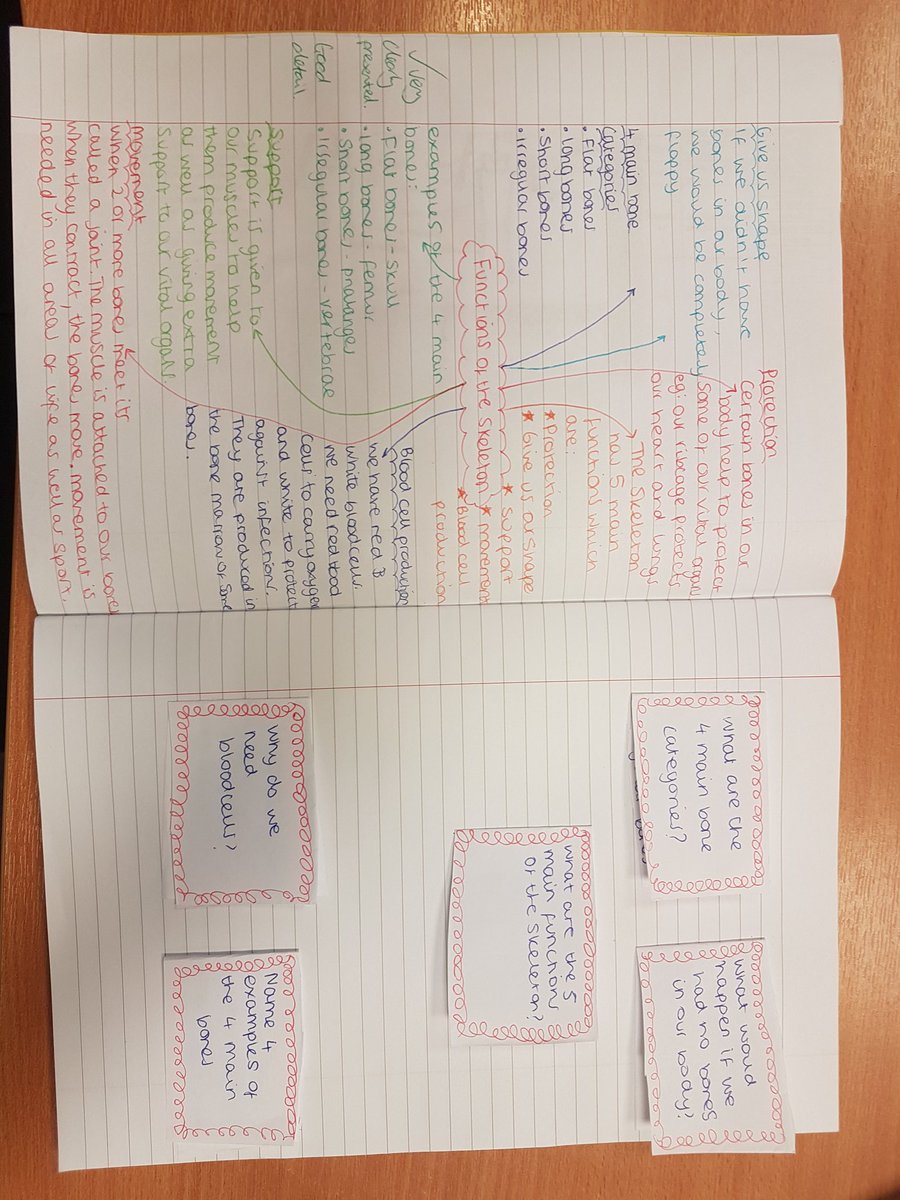 Give us shape
If we didn't have
bones in our body,
we would be completely
floppy
Protection
Certain bones in our
body help to protect
some of our vital organs
eg: our ribcage protects
our heart and lungs
4 main bone
categories
• Flat bones
• Long bones
• Short bones
• Irregular bones
The skeleton
has 5 main
functions which
are:
★ Protection
★ Give us our shape
★ Support
★ movement
★ Blood cell
production
Functions of the Skeleton
examples of the 4 main
bones:
• Flat bones - skull
• Long bones - femur
• Short bones - phalanges
• Irregular bones - vertebrae
✓ Very
clearly
presented.
Good
detail.
Blood cell production
we have red B
white bloodcells.
we need red blood
cells to carry oxygen
and white to protect
against infection.
They are produced in
the bone marrow of some
bones.
Support
Support is given to
our muscles to help
them produce movement
as well as giving extra
support to our vital organs
movement
when 2 or more bones meet its
called a joint. The muscle is attached to our bones
when they contract, the bones move. movement is
needed in all areas of life as well as sport.
what are the
4 main bone
categories?
what would
happen if we
had no bones
in our body?
what are the 5
main functions
of the skeleton?
why do we
need
bloodcells?
Name 4
examples of
the 4 main
bones